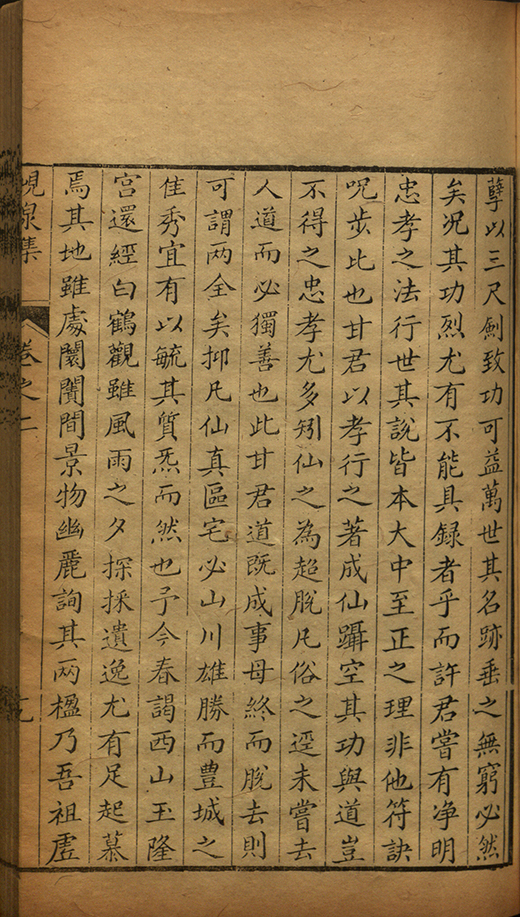 孽以三尺劍致功可益萬世其名跡垂之無窮必然
矣况其功烈尤有不能具録者乎而許君嘗有净明
忠孝之法行世其說皆本大中至正之理非他符訣
呪步比也甘君以孝行之著成仙躡空其功與道豈
不得之忠孝尤多矧仙之為超脫凡俗之逕未嘗去
人道而必獨善也此甘君道既成事母終而脫去則
可謂两全矣抑凡仙真區宅必山川雄勝而豊城之
佳秀宜有以毓其質炁而然也予今春謁西山玉隆
宮還經白鶴觀雖風雨之夕探採遺逸尤有足起慕
焉其地雖處闤闠間景物幽麗詢其两楹乃吾祖虛
峴泉集
卷之二